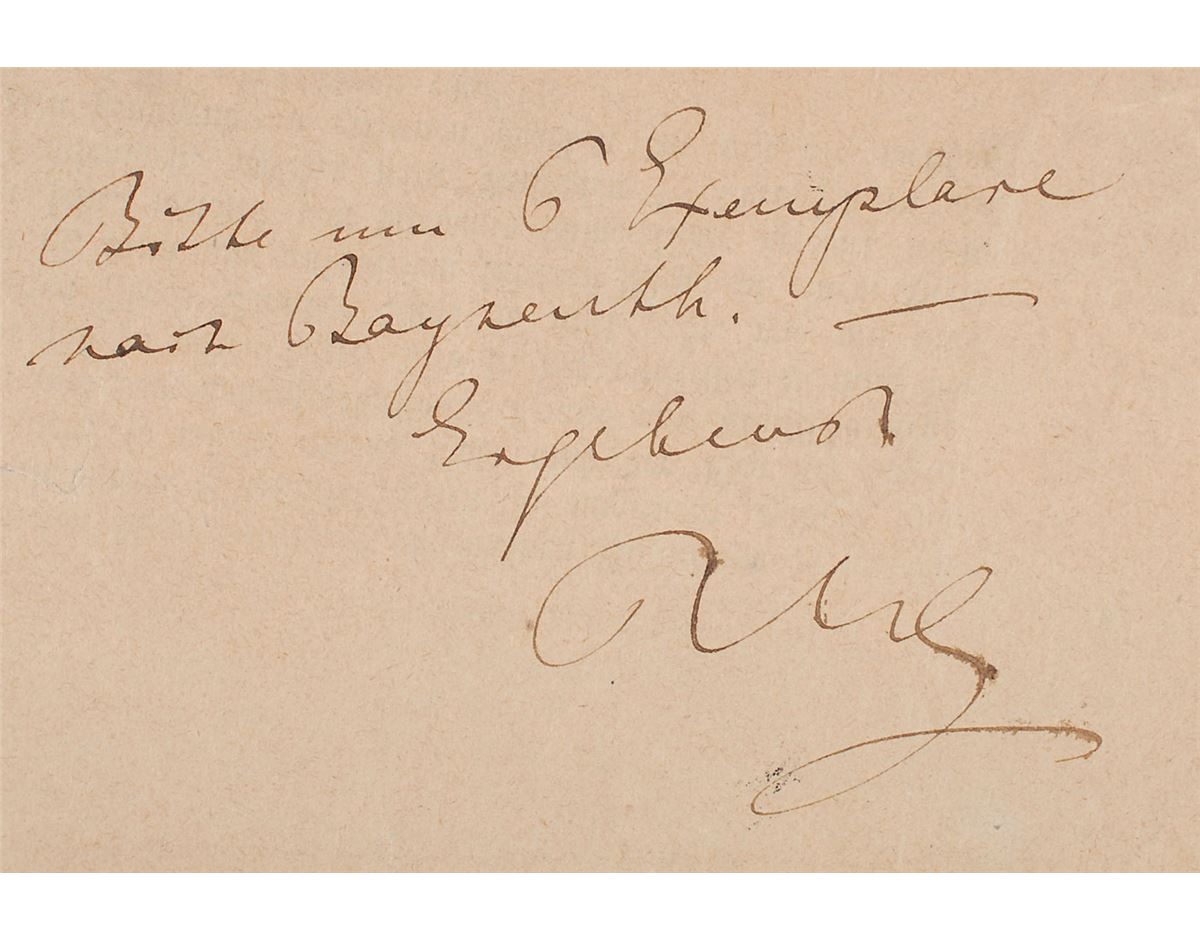 Bitte um 6 Exemplare
nach Bayreuth. —
Ergebenst
RW